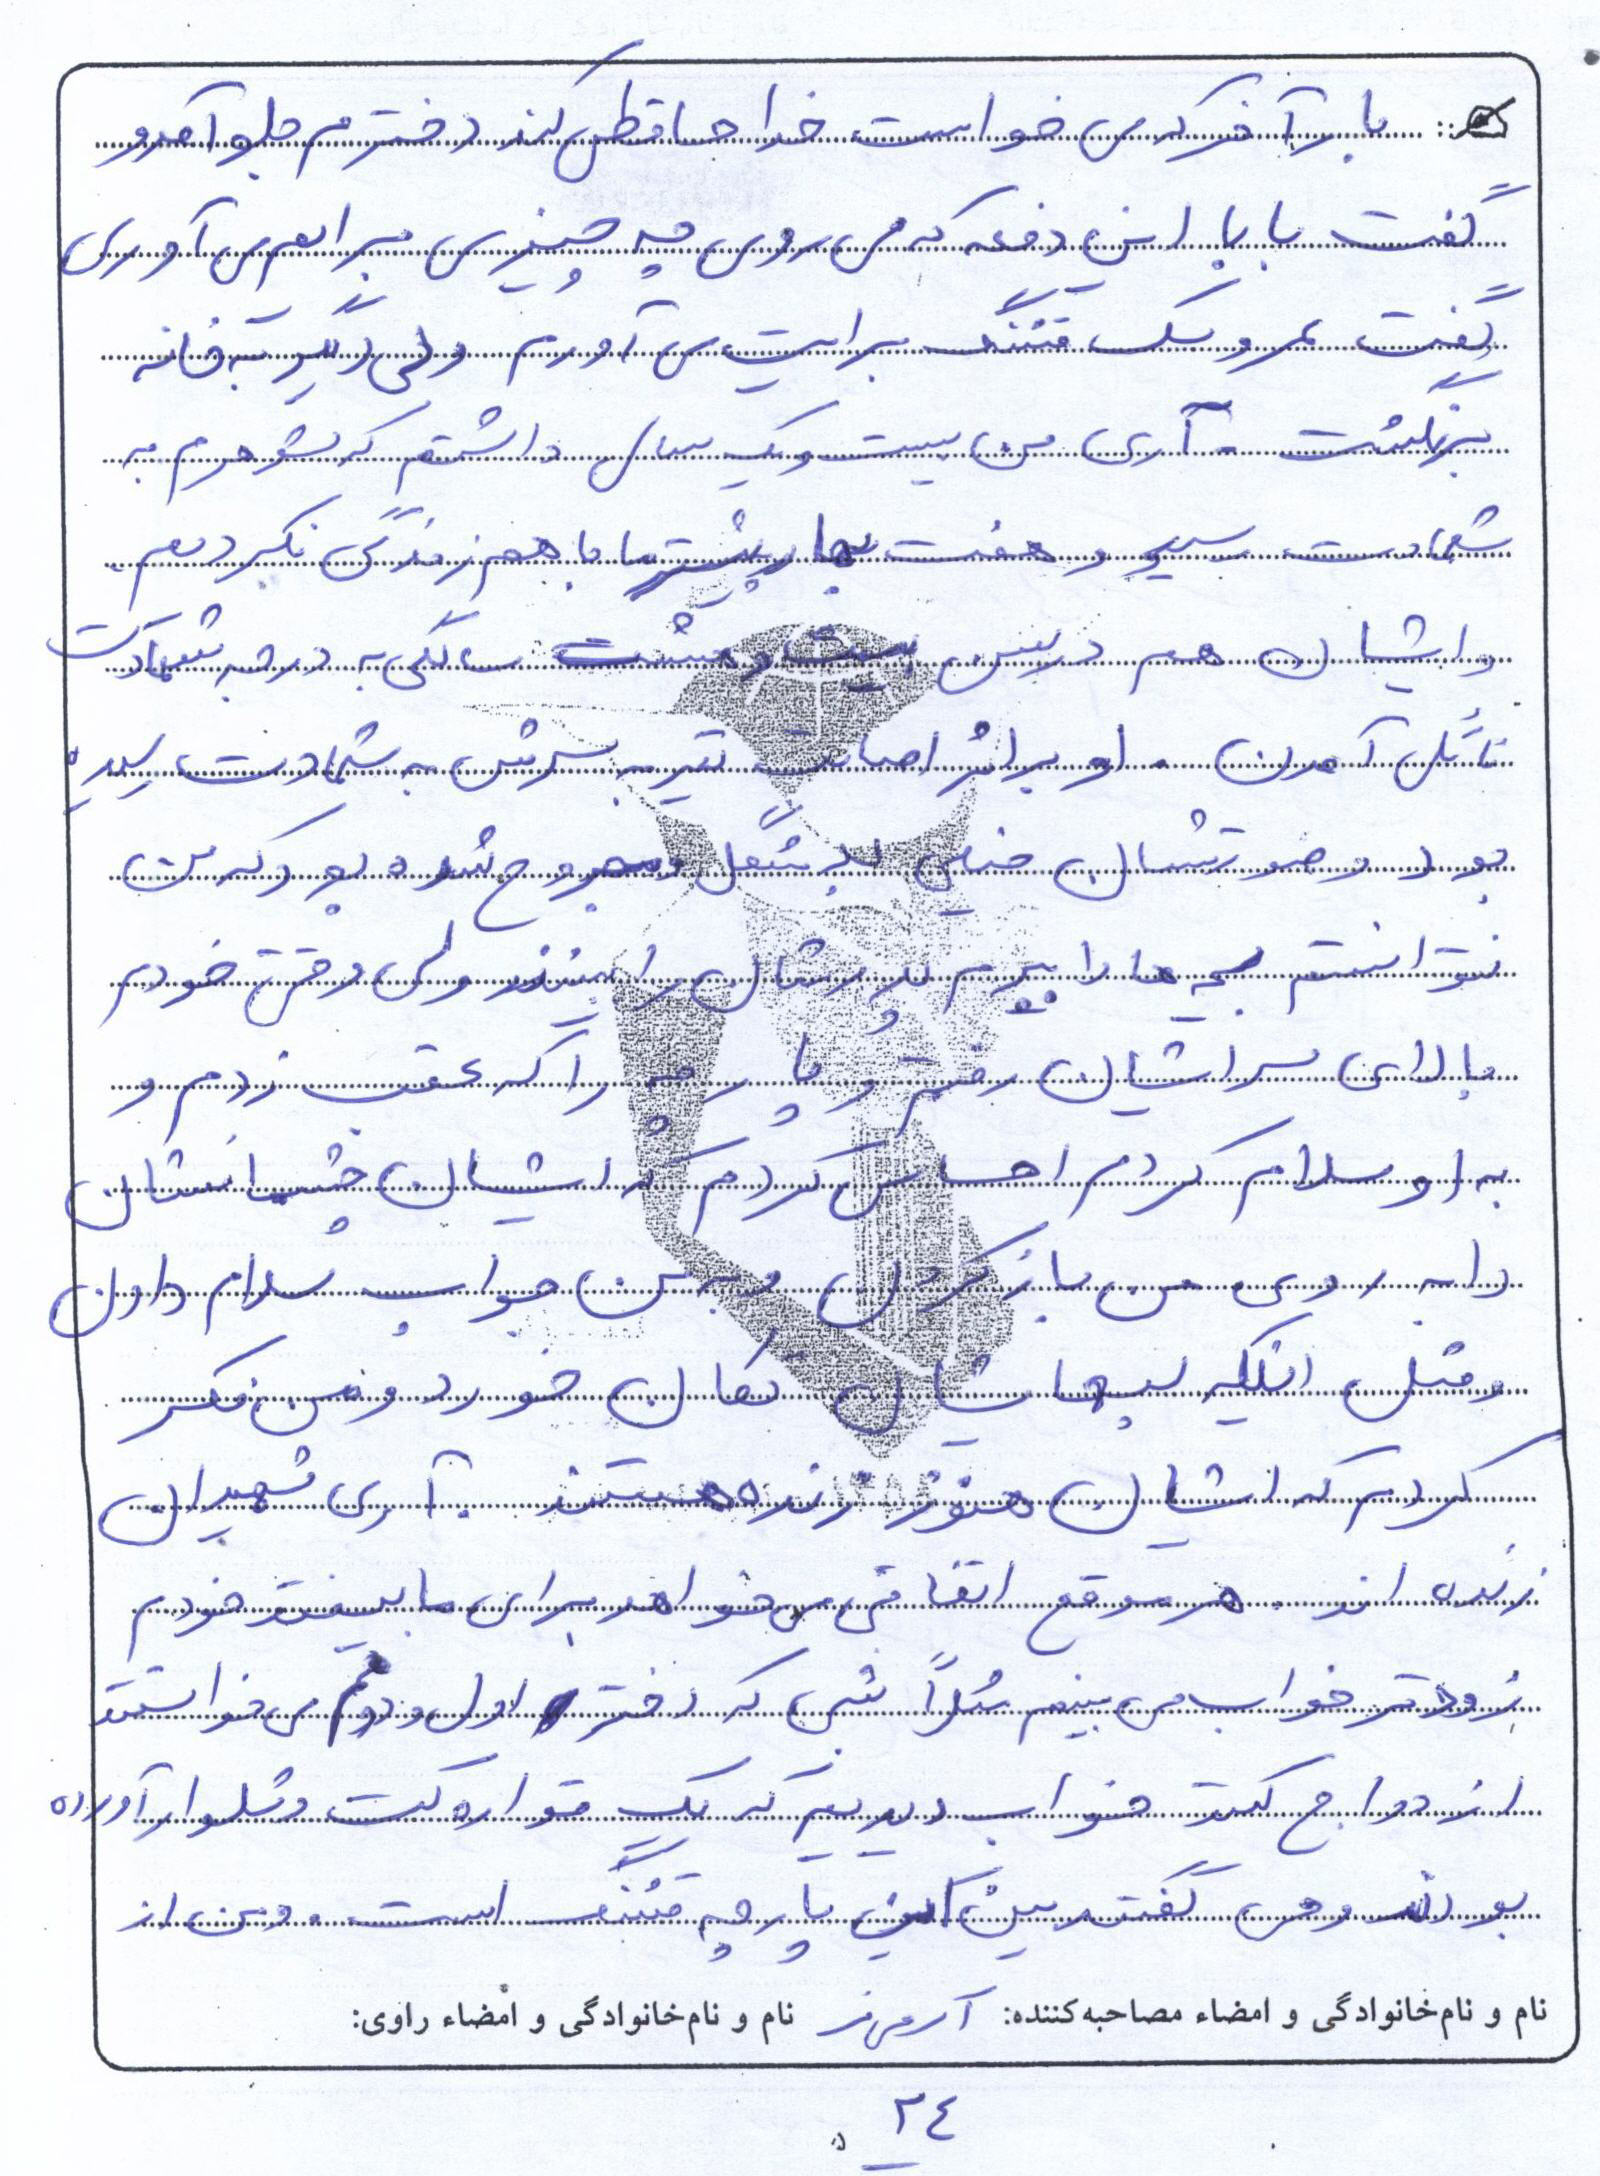 بار آخر که می خواست خدا حافظی کند دخترم جلو آمد و
گفت بابا این دفعه که می روی چه چیزی برایم می آوری
گفت عروسک قشنگ برایت می آورم ولی دیگر به خانه
برنگشت . آری من بیست و یک سال داشتم که شوهرم به
شهادت رسید و هفت بهار بیشتر ما با هم زندگی نکردیم .
و ایشان هم در سن بیست و هشت سالگی به درجه شهادت
نائل آمدن . او بر اثر اصابت تیر به سرش به شهادت رسیده
بود و صورتشان خیلی بد شکل و مجروح شده بود که من
نتوانستم بچه ها را ببرم پدرشان را ببینند ولی وقتی خودم
بالای سر ایشان رفتم و پارچه را که عقب زدم و
به او سلام کردم احساس کردم که ایشان چشمانشان
را به روی من باز کردن و به من جواب سلام دادن
و مثل اینکه لبهایشان تکان خورد و من فکر
کردم که ایشان هنوز زنده هستند . آری شهیدان
زنده اند . هر موقع اتفاقی می خواهد برای ما بیفتد خودم
زودتر خواب می بینم مثلاً شبی که دختر اول و دومم می خواستند
ازدواج کنند خواب دیدیم که یک قواره کت و شلوار آورده
بودند و می گفتند ببین این پارچه قشنگ است . و من از
نام و نام‌خانوادگی و امضاء مصاحبه‌کننده:
نام و نام‌خانوادگی و امضاء راوی:
۲٤